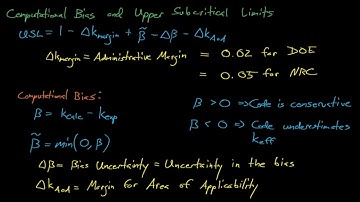 Computational Bias and Upper Subcritical Limits
USL = 1 - Δkmargin + β̃ - Δβ - ΔkAoA
Δkmargin = Administrative Margin = 0.02 for DOE
= 0.05 for NRC
Computational Bias:
β = kcalc - kexp
β̃ = min(0, β)
β > 0 ⇒ Code is conservative
β < 0 ⇒ Code underestimates
keff
Δβ = Bias Uncertainty = Uncertainty in the bias
ΔkAoA = Margin for Area of Applicability